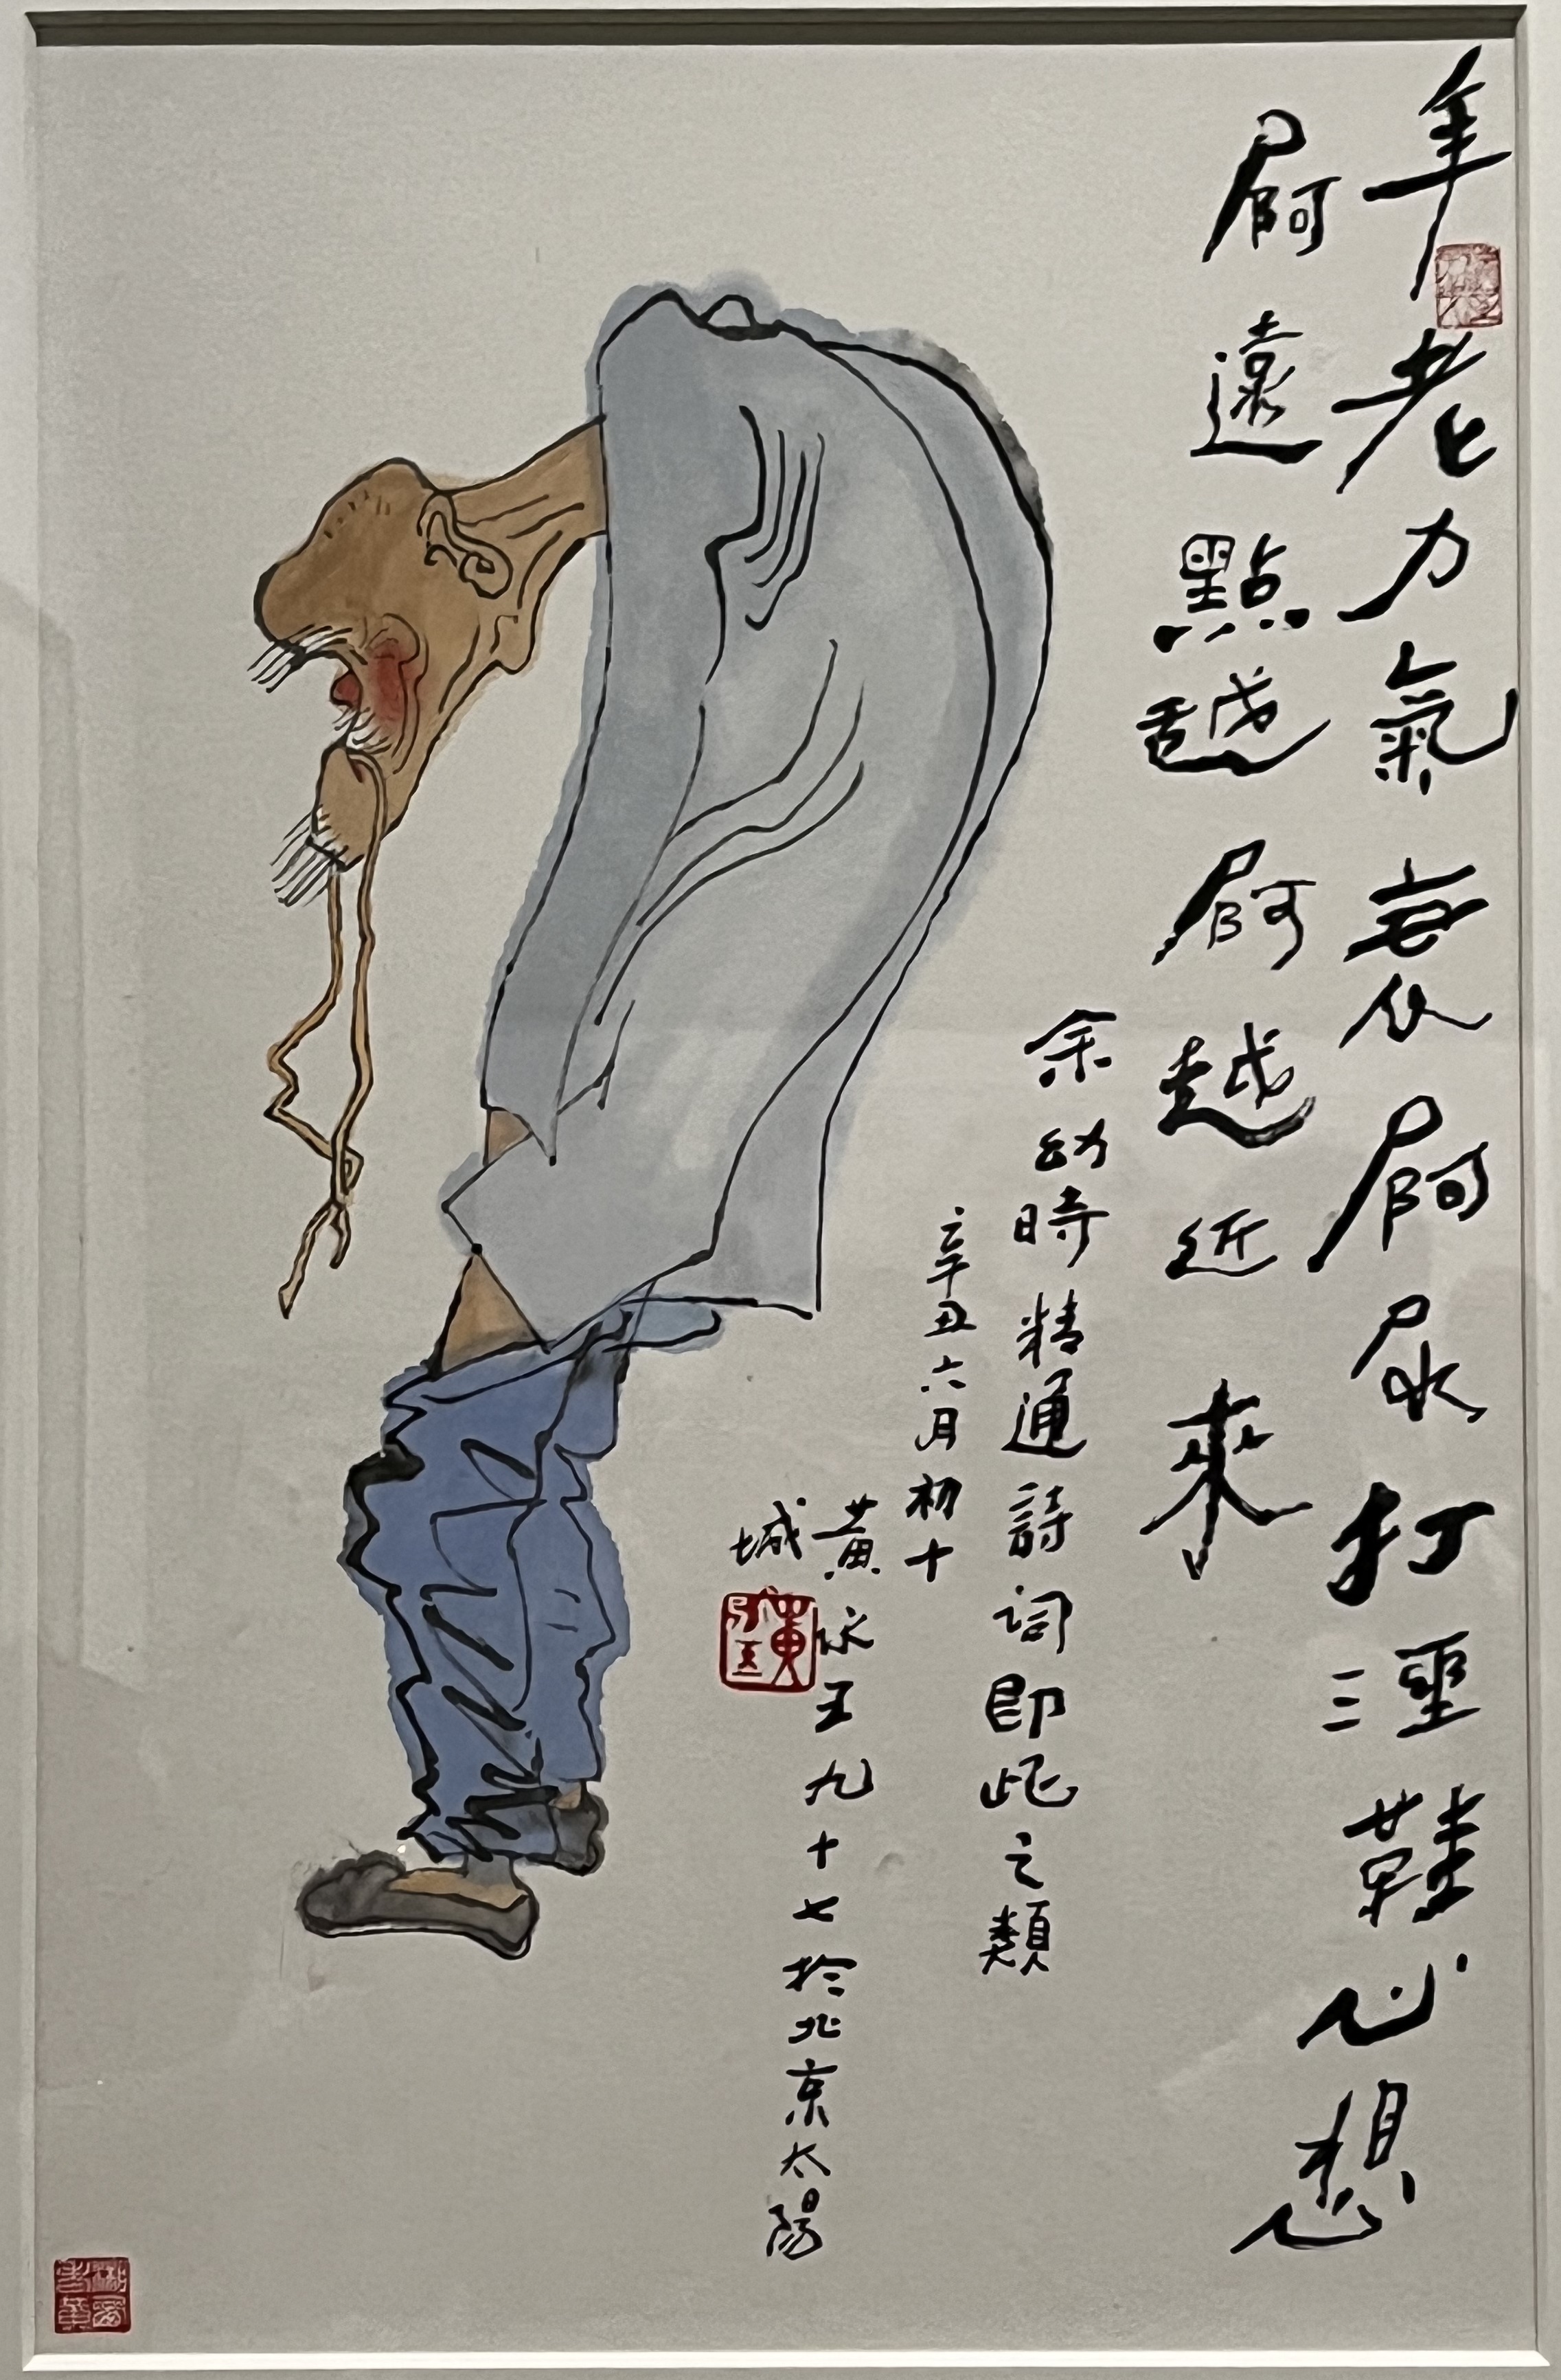 年老力氣衰屙尿打溼鞋心想
屙遠點越屙越近來
余幼時精通詩詞即此之類
辛丑六月初十
黃永玉九十七於北京太陽
城